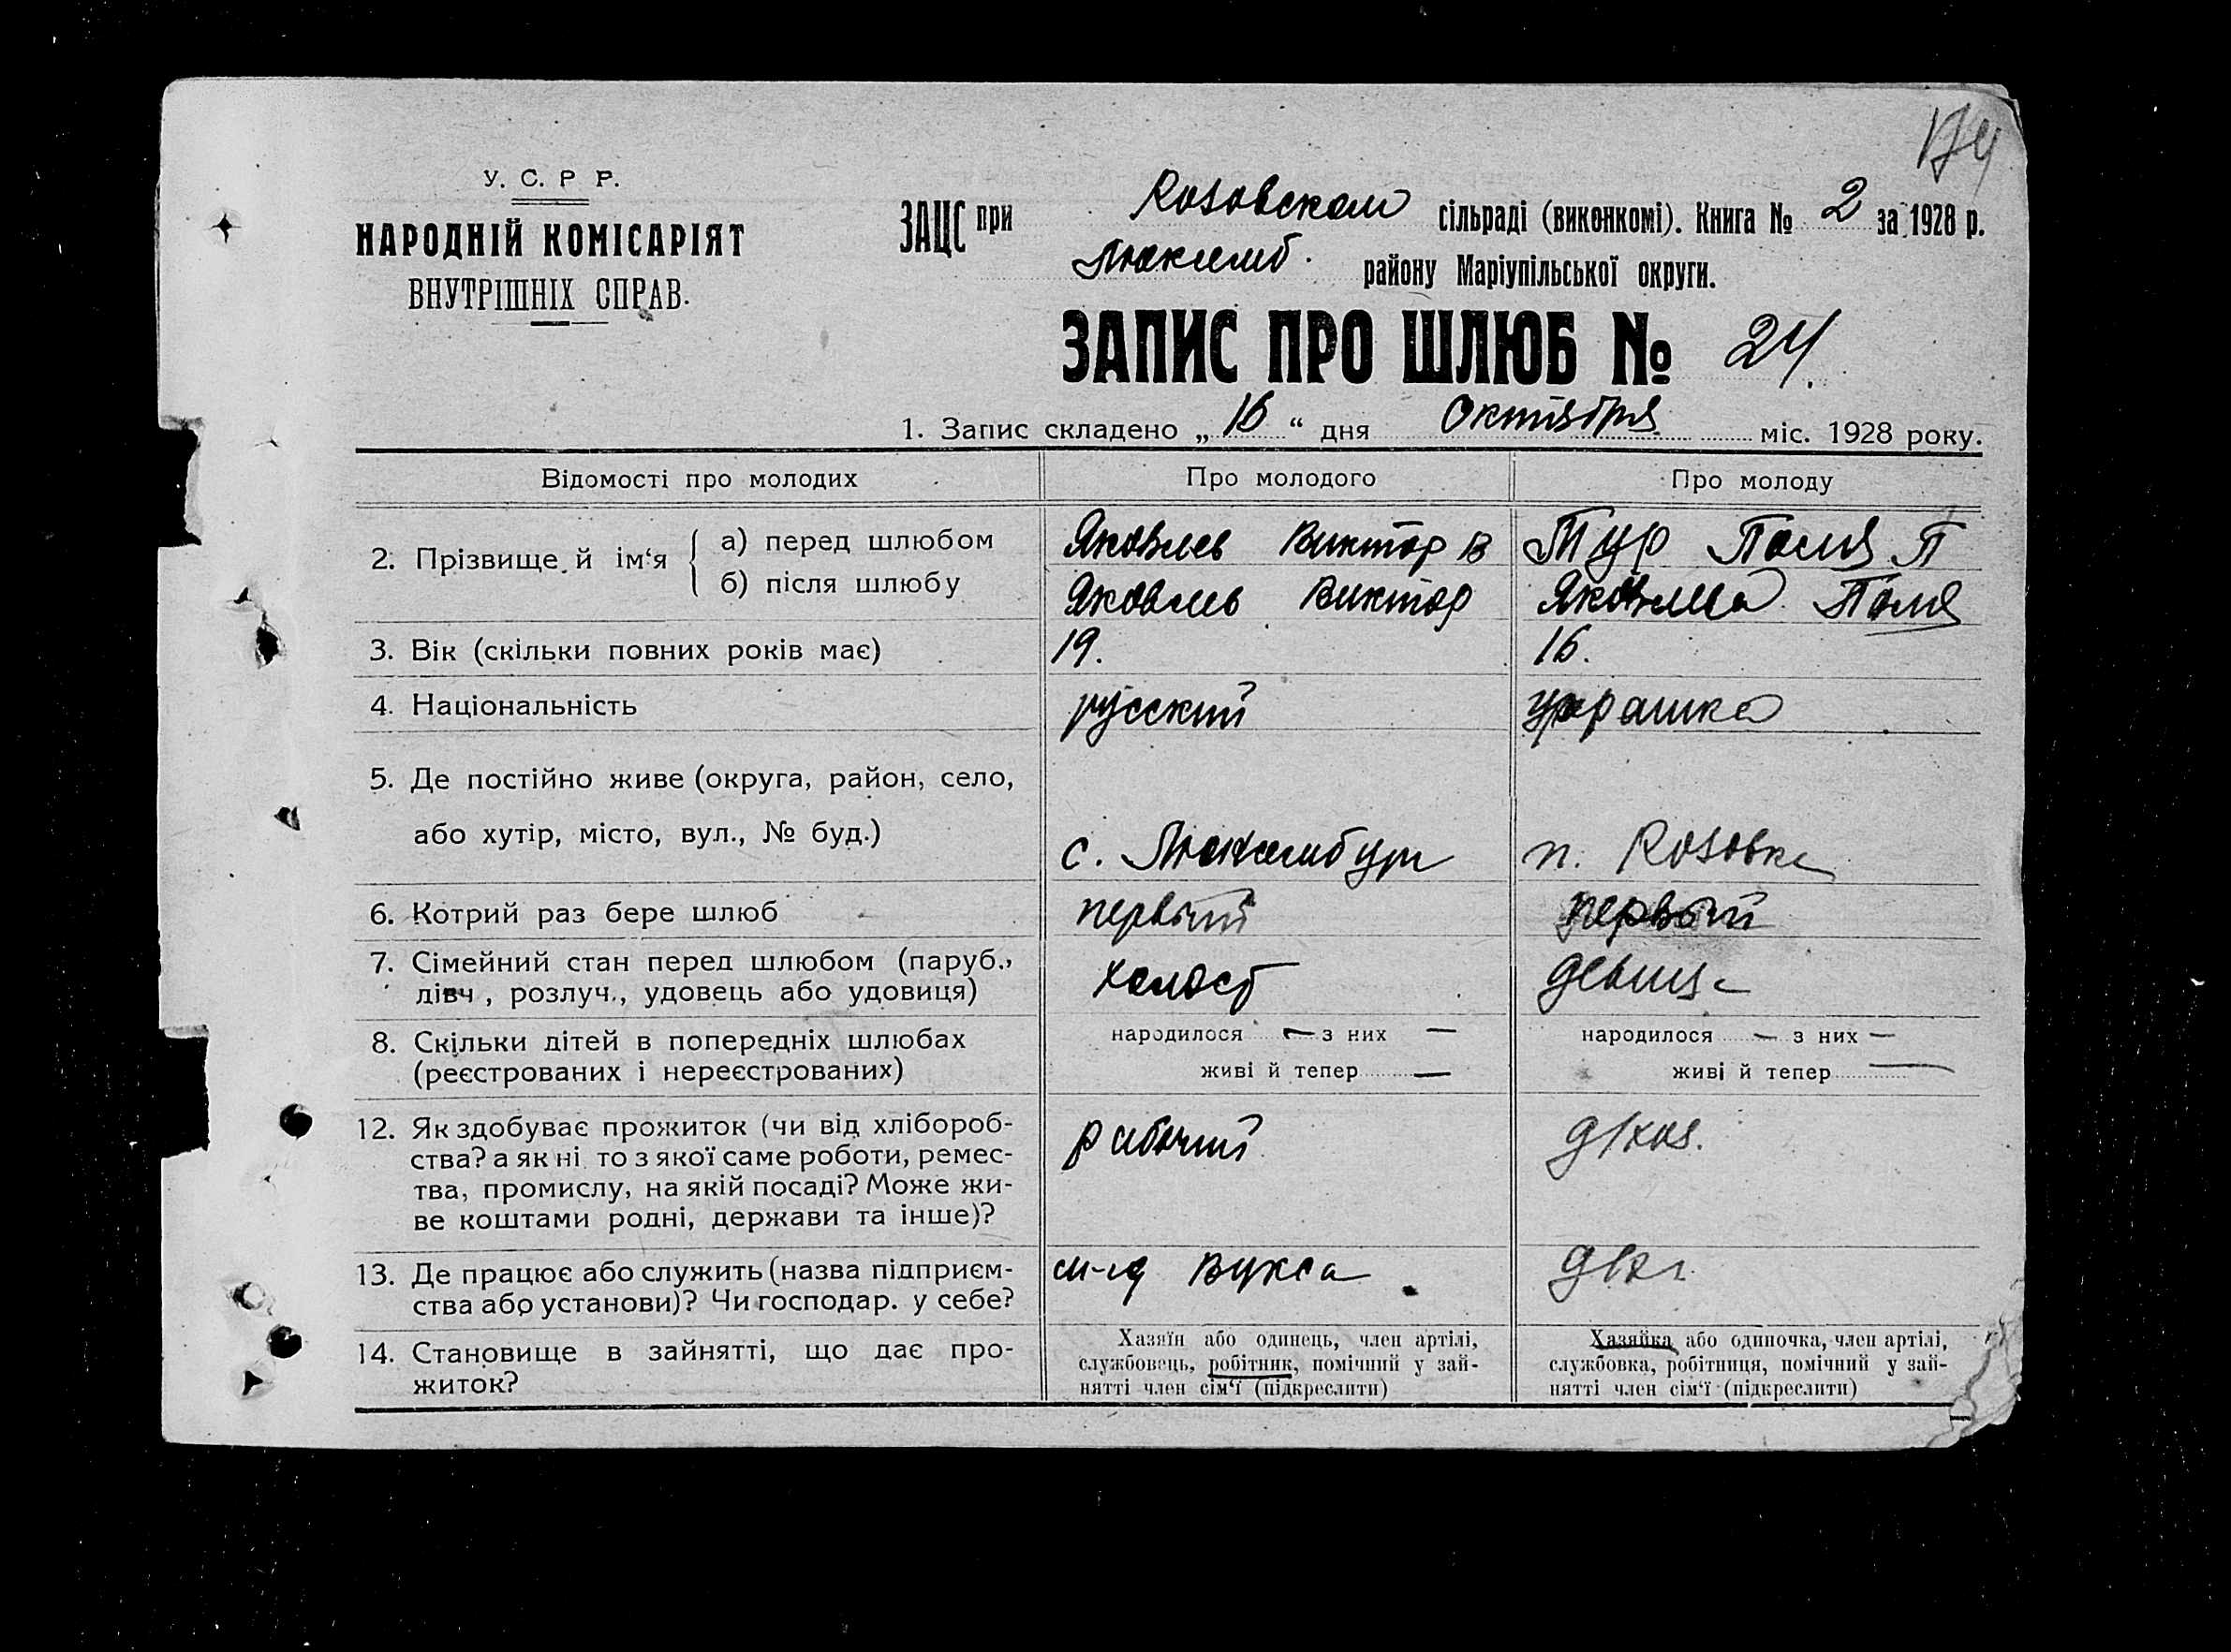 174
У. С. Р Р.
НАРОДНІЙ КОМІСАРІЯТ
ВНУТРІШНІХ СПРАВ.
ЗАЦС при Rозовском сільраді (виконкомі). Книга № 2 за 1928 р.
Люксемб. району Маріупільської округи.
ЗАПИС ПРО ШЛЮБ № 24.
1. Запис складено „ 16 “ дня Октября міс. 1928 року.
Відомості про молодих Про молодого Про молоду
2. Прізвище й ім‘я
а) перед шлюбом Яковлев Виктор В Тур Поля П
б) після шлюбу Яковлев Виктор Яковлева Поля
3. Вік (скільки повних років має) 19. 16.
4. Національність русский
5. Де постійно живе (округа, район, село,
або хутір, місто, вул., № буд.) с. Люксембург п. Rозовка
6. Котрий раз бере шлюб первый первый
7. Сімейний стан перед шлюбом (паруб.,
дівч , розлуч., удовець або удовиця) холост девица
8. Скільки дітей в попередніх шлюбах народилося — з них — народилося — з них —
(реєстрованих і нереєстрованих) живі й тепер — живі й тепер —
12. Як здобуває прожиток (чи від хлібороб-
ства? а як ні то з якої саме роботи, ремес-
тва, промислу, на якій посаді? Може жи-
ве коштами родні, держави та інше)? рабочий
13. Де працює або служить (назва підприєм-
ства або установи)? Чи господар. у себе? Вукса
14. Становище в зайнятті, що дає про-
житок?
Хазяїн або одинець, член артілі,
службовець, робітник, помічний у зай-
нятті член сім‘ї (підкреслити)
Хазяйка або одиночка, член артілі,
службовка, робітниця, помічний у зай-
нятті член сім‘ї (підкреслити)